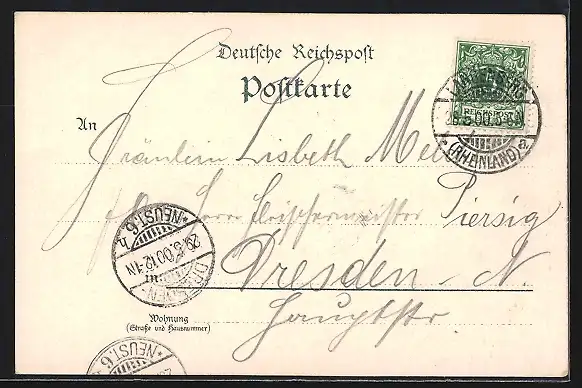 Deutsche Reichspost
Postkarte
REICHSPOST
28.5.00.
(RHEINLAND) a.
An
Fräulein Lisbeth
Herrn Fleischermeister Piersig
Dresden - N.
Hauptstr.
*NEUST.6*h
29.5.00.12-1N
DRESDEN-
Wohnung
(Straße und Hausnummer)
*NEUST.6